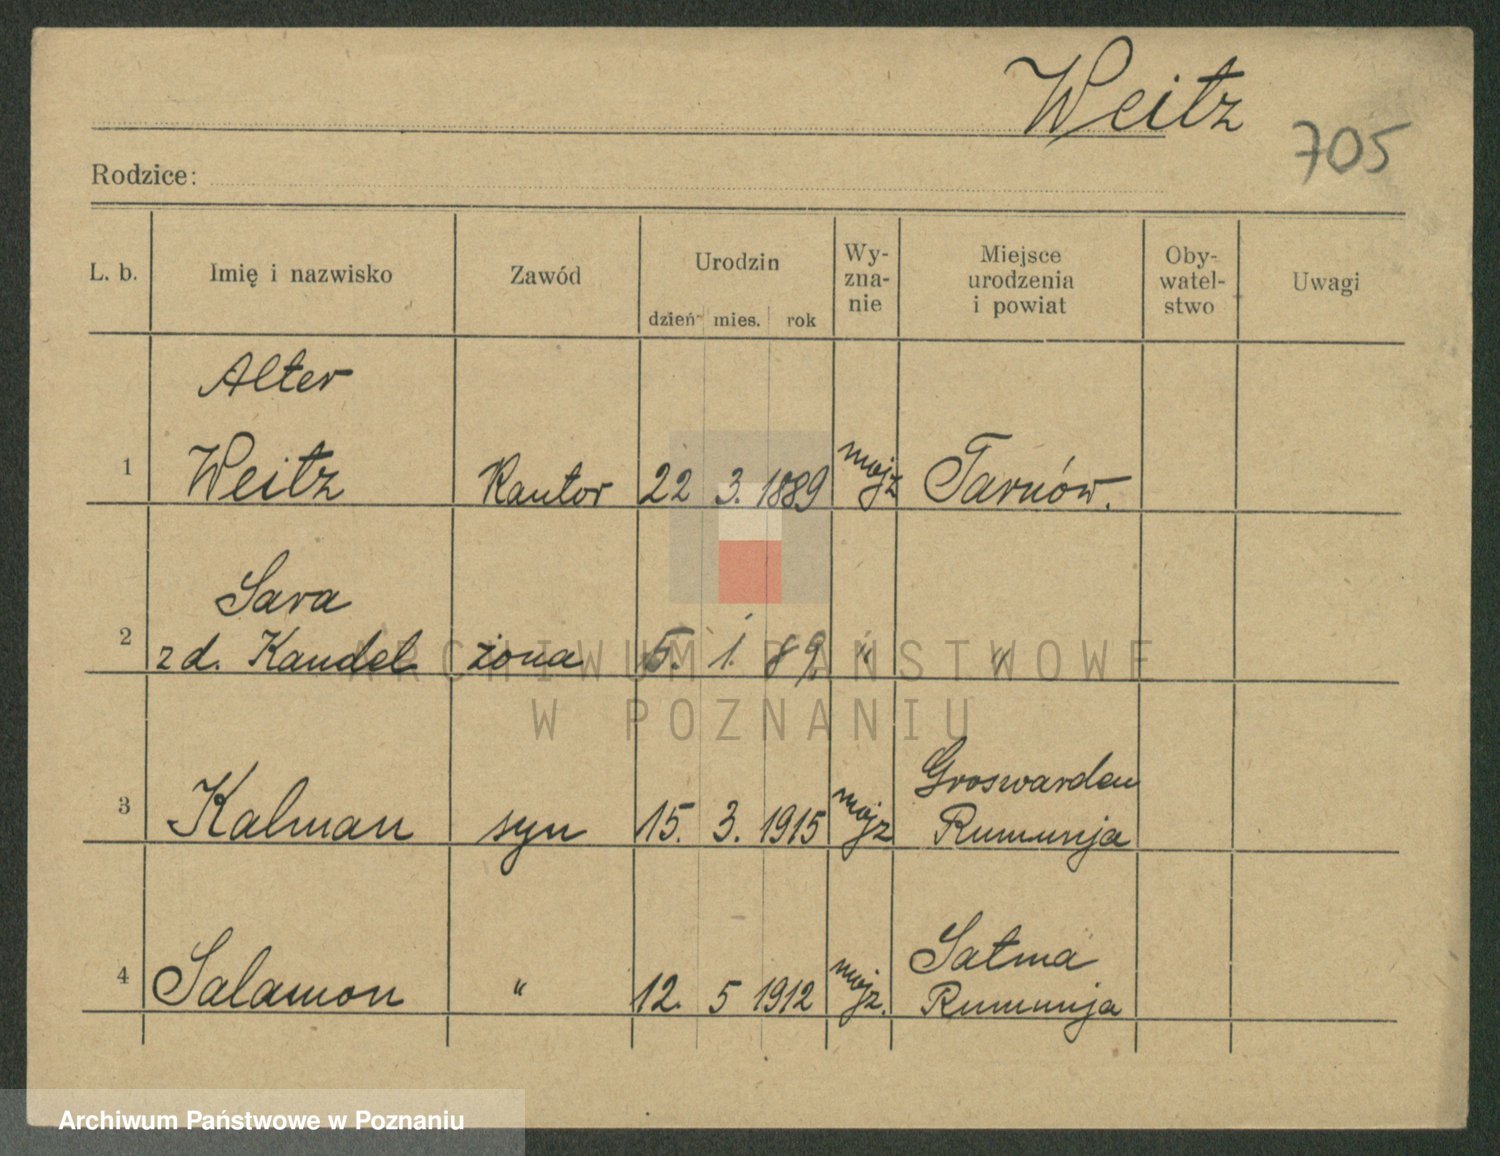 Weitz
705
Rodzice:
L. b. Imię i nazwisko Zawód Urodzin dzień mies. rok Wy-zna-nie Miejsce urodzenia i powiat Oby-watel-stwo Uwagi
Alter
1 Weitz Kantor 22 3. 1889 mojż Tarnów.
Sara
2 z d. Kandel żona 5. 1. 89. " "
ARCHIWUM PAŃSTWOWE
W POZNANIU
Groswarden
3 Kalman syn 15. 3. 1915 mojż Rumunja
Satma
4 Salamon " 12. 5 1912 mojż. Rumunja
Archiwum Państwowe w Poznaniu